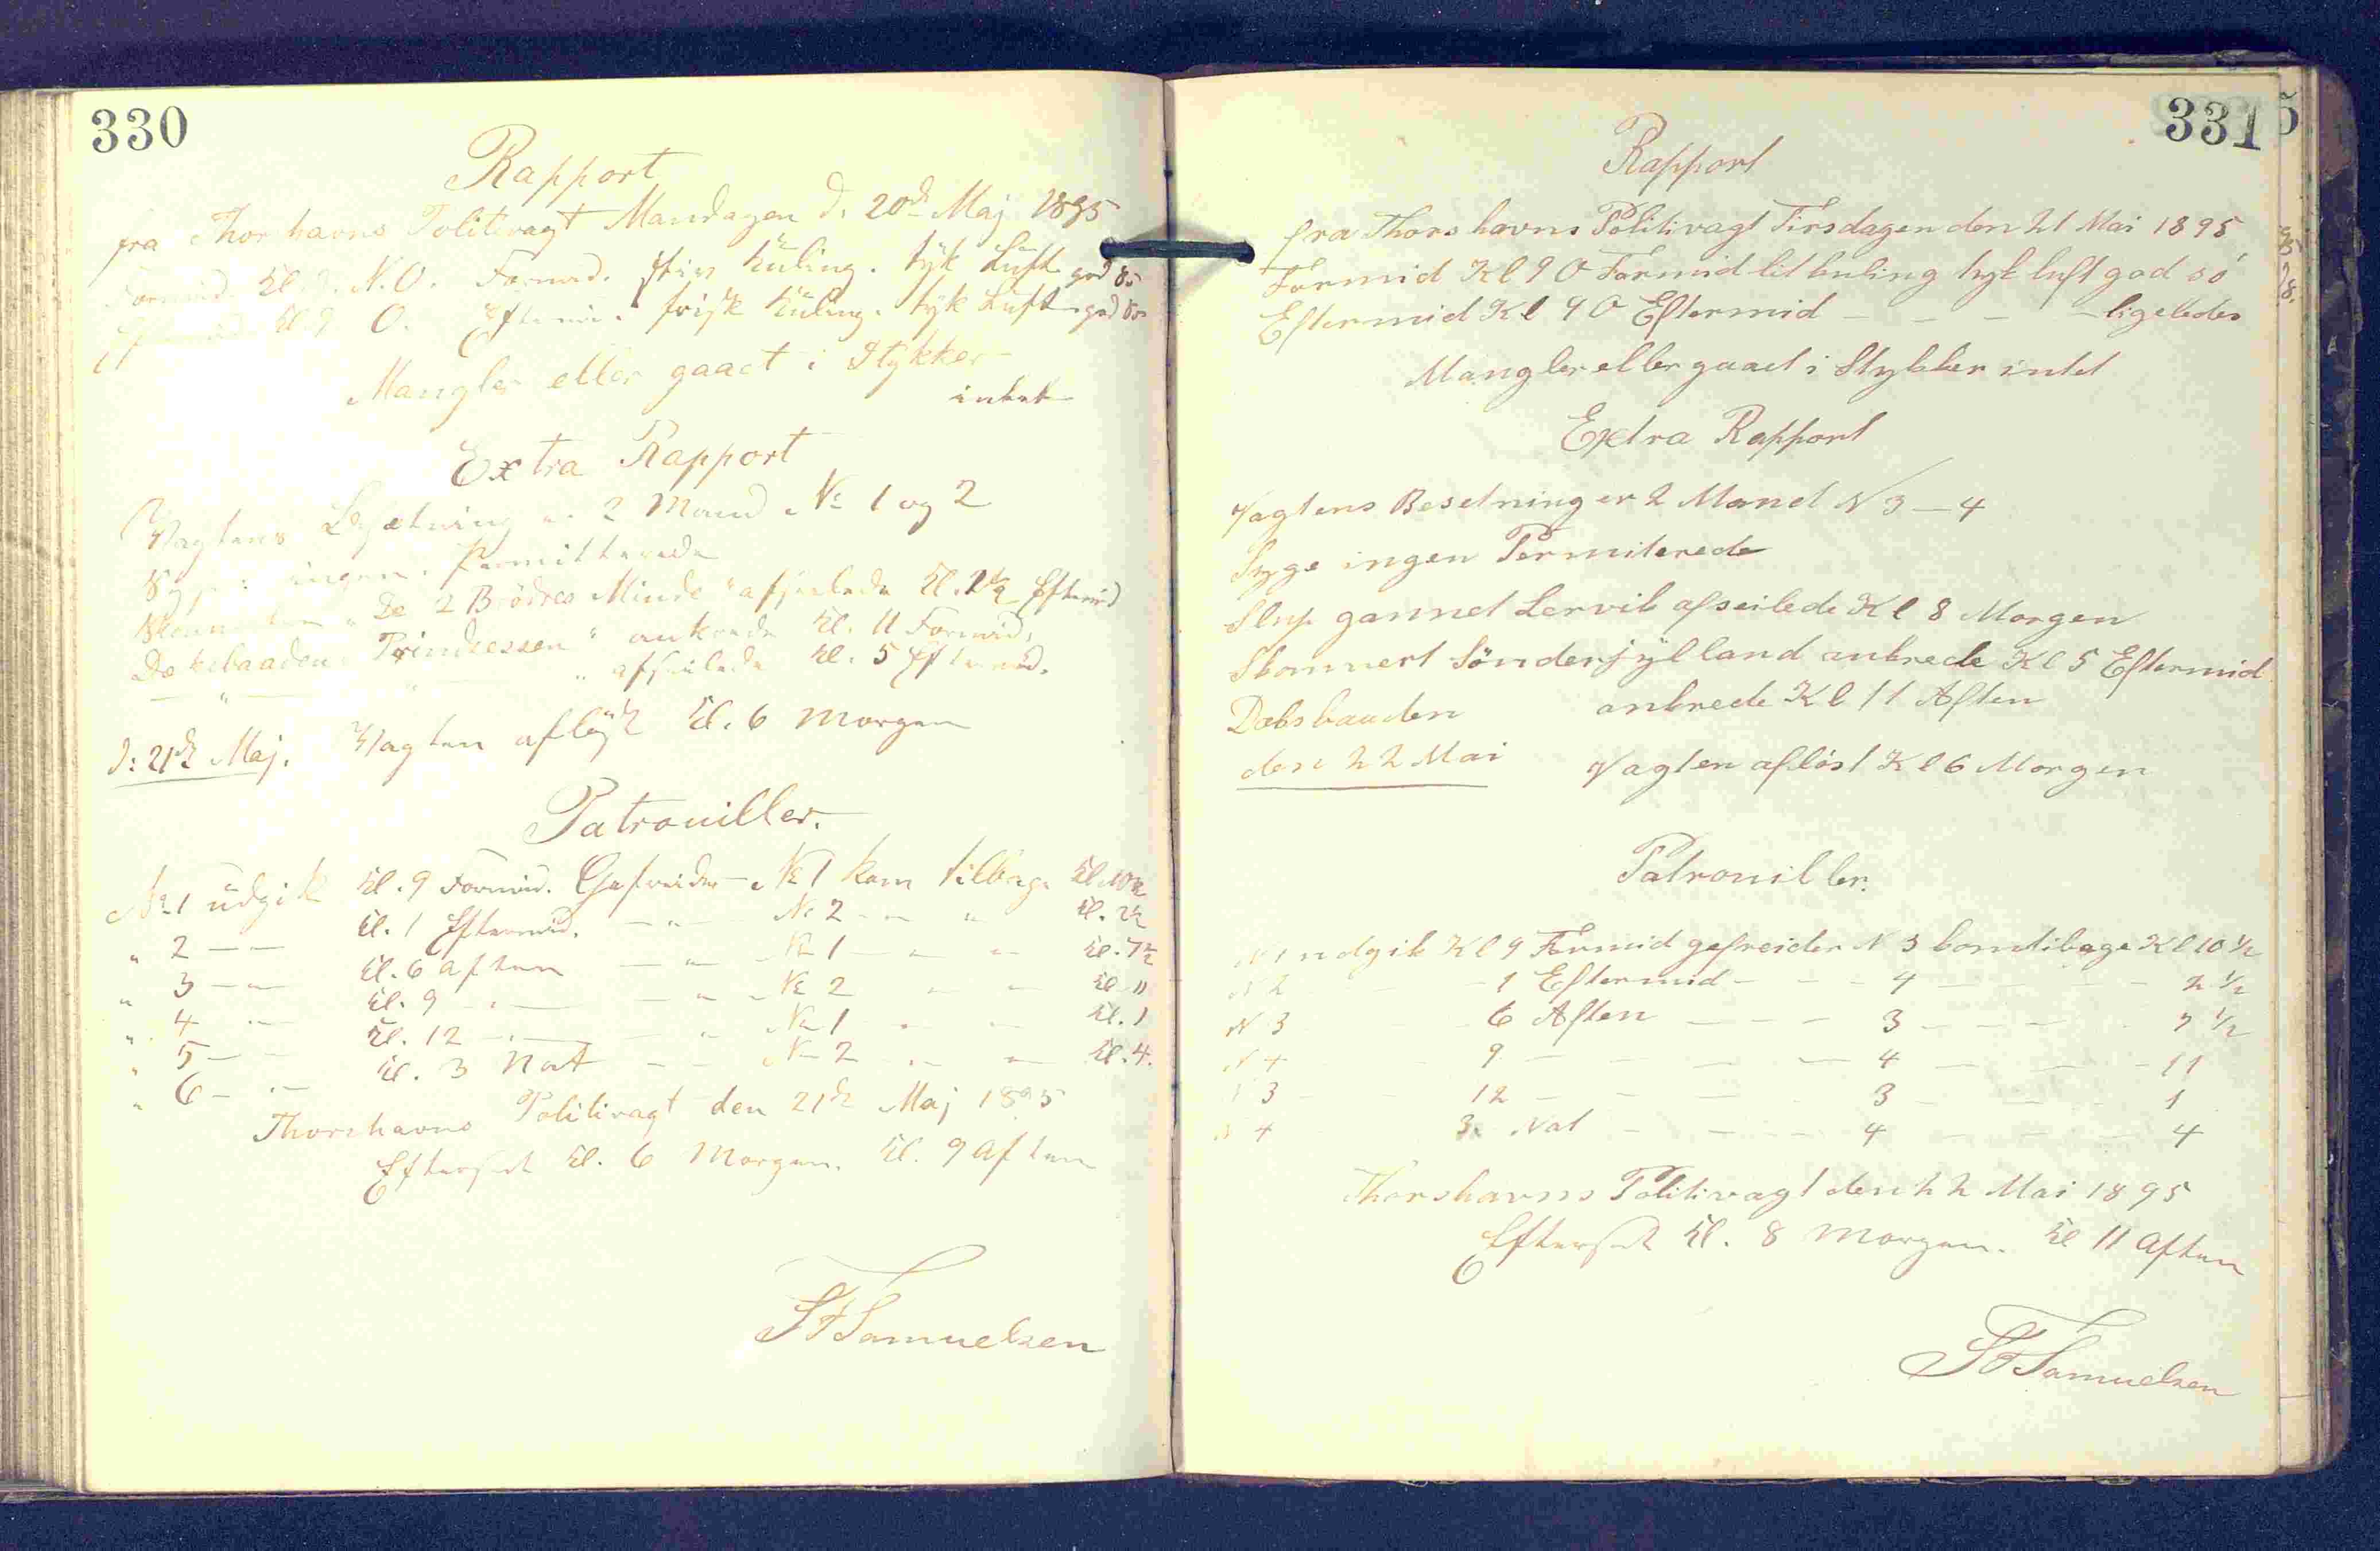 330
Rapport
fra Thorshavns Politivagt Mandagen d. 20de Maj 1895
Formid. Kl. 9. N.O. Formid. stiv Kuling. tyk Luft god Sö
Eftermid. Kl. 9 O. Eftermid. frisk Kuling. tyk Luft god Sö
Mangler eller gaaet i Stykker
intet
Extra Rapport
Vagtens Besætning er 2 Mand No 1 og 2
Syge ingen. Permitterede
Skonnerten "De 2 Brödres Minde" afseilede Kl. 2½ Eftmid
Dæksbaaden "Prindsessen" ankrede Kl. 11 Formid.
— " — " — " afseilede Kl. 5 Eftermid.
d: 21de Maj. Vagten aflöst Kl. 6 Morgen
Patrouiller.
No 1 udgik Kl. 9 Formid. Gefreider No 1 kom tilbage Kl. 10½
" 2 — — Kl. 1 Eftermid. — " — No 2 — " — " Kl. 2½
" 3 — — Kl. 6 Aften — " — No 1 — " — Kl. 7½
" 4 — — Kl. 9 — " — — " — No 2 " — Kl. 11
" 5 — — Kl. 12 — " — " — No 1 " — Kl. 1
" 6 — — Kl. 3 Nat — — No 2 — " — Kl. 4.
Thorshavns Politivagt den 21de Maj 1895
Efterset Kl. 6 Morgen. Kl. 9 Aften
Samuelsen
331
Rapport
fra Thorshavns Politivagt Tirsdagen den 21 Mai 1895
Formid Kl 9 O Formid lit kuling tyk luft god sö
Eftermid Kl 9 O Eftermid — — — — ligeledes
Mangler eller gaaet i Stykker intet
Extra Rapport
Vagtens Besetning er 2 Mand N 3 — 4
Syge ingen Permiterede
Slup gannet Lervik afseilede Kl 8 Morgen
Skonnert Sönderjylland ankrede Kl 5 Eftermid
Dæksbaaden ankrede Kl 11 Aften
den 22 Mai Vagten aflöst Kl 6 Morgen
Patrouiller.
N 1 udgik Kl 9 Formid gefreider N 3 kom tibage Kl 10 ½
N 2 — 1 Eftermid — — — 4 — — — 2 ½
N 3 — 6 Aften — — — 3 — — — 7 ½
N 4 — 9 — — — — 4 — — — 11
N 3 — 12 — — — — 3 — — — 1
N 4 — 3 Nat — — — 4 — — — 4
Thorshavns Politivagt den 22 Mai 1895
Efterset Kl. 8 Morgen. Kl 11 Aften
Samuelsen